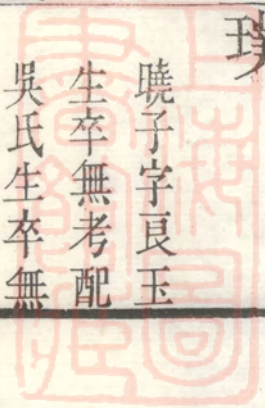 曉子字良玉
生卒無考配
吳氏生卒無
上海圖
書館藏